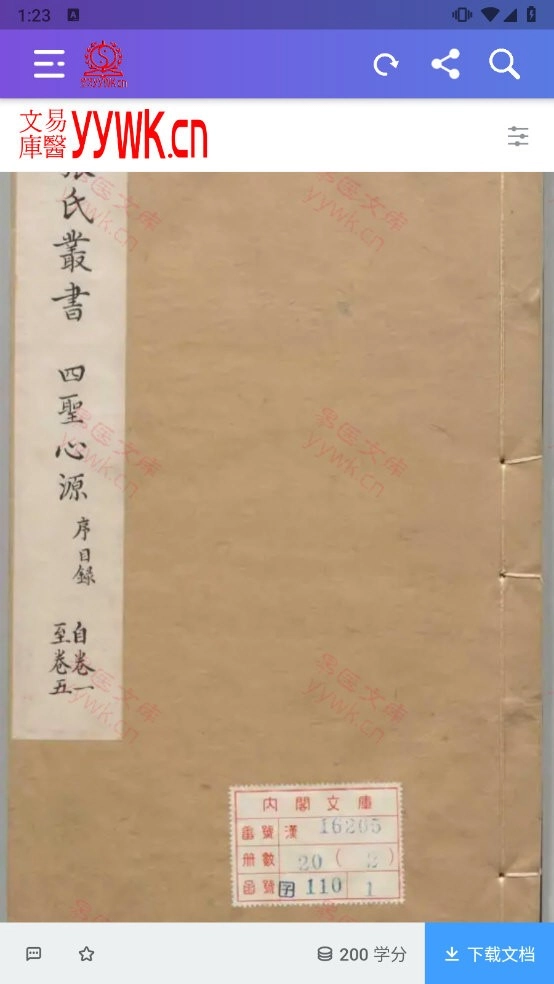 1:23
A
文易
庫醫
YYWK.cn
氏叢書
四聖心源
序目錄
自卷一
至卷五
易医文库
yywk.cn
易医文库
yywk.cn
易医文库
yywk.cn
易医文库
yywk.cn
易医文库
yywk.cn
易医文库
yywk.cn
內閣文庫
番號 漢 16205
册數 20 ( 2 )
函號 子 110 1
200 学分
下载文档